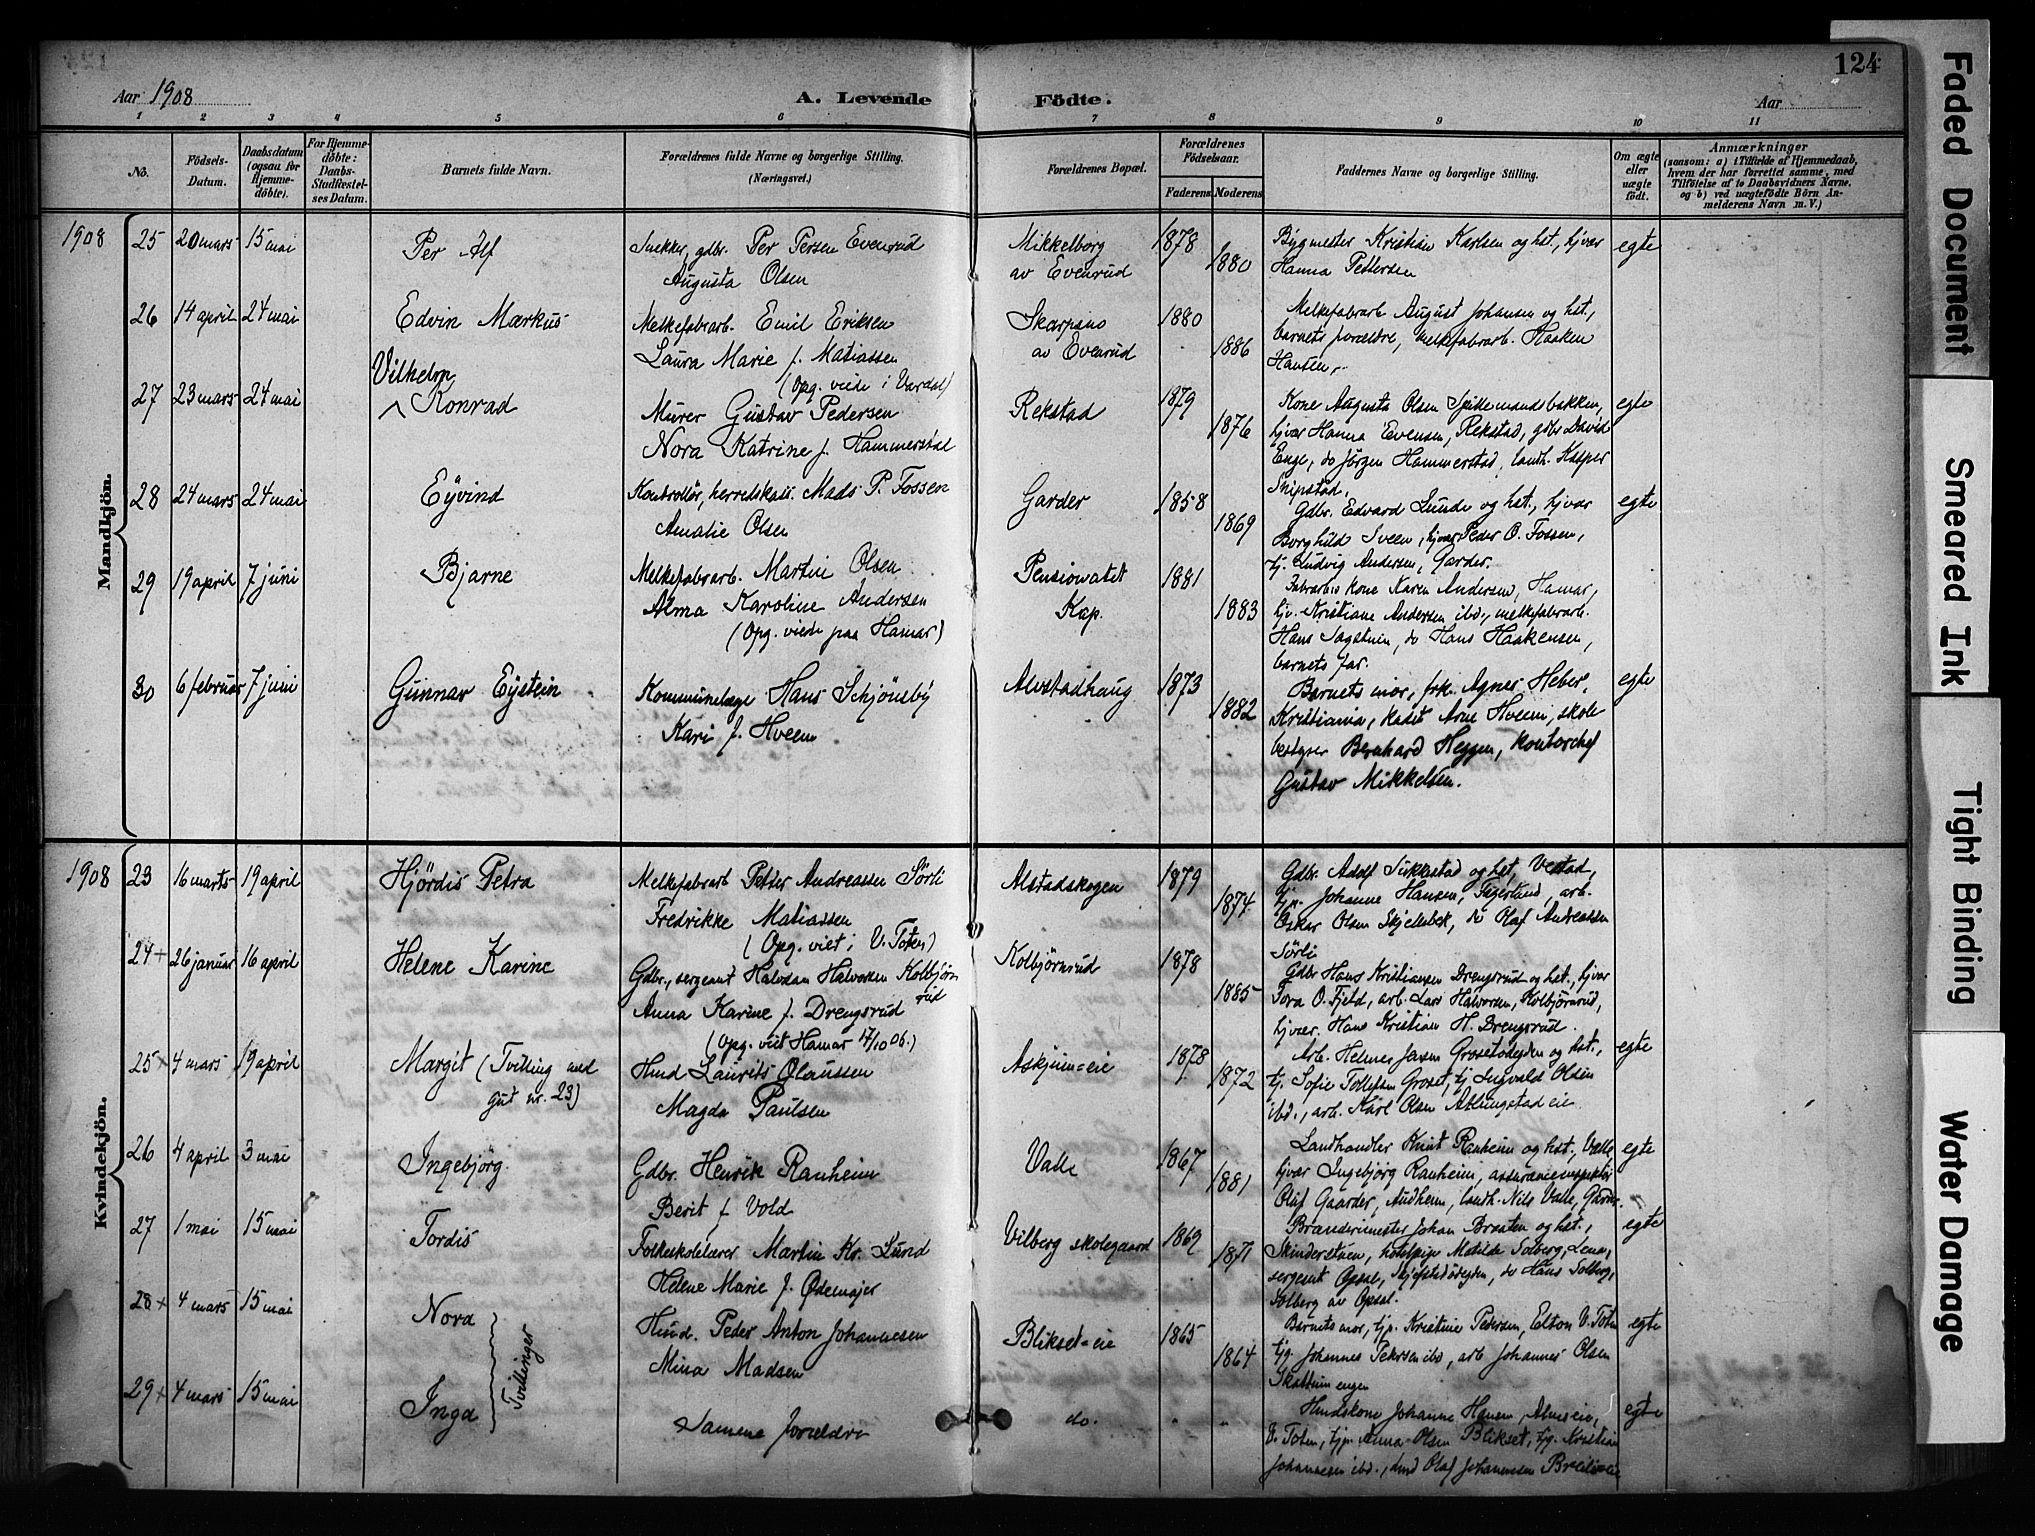 124
Aar 1908
A. Levende Födte.
Aar
1 2 3 4 5 6 7 8 9 10 11
No.
Födsels-Datum.
Daabsdatum (ogsaa for Hjemme-döbte).
For Hjemme-döbte: Daabs-Stadfæstel-ses Datum.
Barnets fulde Navn.
Forældrenes fulde Navne og borgerlige Stilling. (Næringsvei.)
Forældrenes Bopæl.
Forældrenes Födselsaar.
Faderens Moderens
Faddernes Navne og borgerlige Stilling.
Om ægte eller uægte födt.
Anmærkninger
(saasom: a) i Tilfælde af Hjemmedaab, hvem der har forrettet samme, med Tilföielse af to Daabsvidners Navne, og b) ved uægtefödte Börn An-melderens Navn m. V.)
Mandkjön.
1908 25 20 mars 15 mai Per Alf
Snekker, gdbr. Per Persen Evenrud
Augusta Olsen
Mikkelborg
av Evenrud
1878
1880
Bygmester Kristian Karlsen og hst., hjvær
Hanna Pettersen
egte
26 14 april 24 mai Edvin Markus
Melkefabrarb. Emil Eriksen
Laura Marie f. Matiassen
(Opg. viede i Vardal)
Skarpsno
av Evenrud
1880
1886
Melkefabrarb. August Johansen og hst.,
barnets forældre, melkefabrarb. Haaken
Hansen
27 23 mars 24 mai Vilhelm
Konrad
Murer Gustav Pedersen
Nora Katrine f. Hammerstad
Rekstad
1879
1876
Kone Augusta Olsen Spillemandsbakken,
hjvær Hanna Evensen, Rekstad, gdbr David
Enge, do Jörgen Hammerstad, landh. Kasper
Skipstad.
egte
28 24 mars 24 mai Eyvind
Kontrollör, herredskass. Mads P. Fossen
Amalie Olsen
Garder
1858
1869
Gdbr. Edvard Lunde og hst., hjvær
Borghild Sveen, hjvær Peder O. Fossen,
tj. Ludvig Andersen, Garder.
egte
29 19 april 7 juni Bjarne
Melkefabrarb. Martin Olsen
Alma Karoline Andersen
(Opg. viede paa Hamar)
Pensionatet
Kap.
1881
1883
Fabrarb's kone Karen Andersen, Hamar,
hjv. Kristiane Andersen ibd., melkefabrarb.
Hans Sagstuen, do Hans Haakensen,
barnets far.
30 6 februar 7 juni Gunnar Eystein
Kommunelæge Hans Schjönsby
Kari f. Hveem
Alvstadhaug
1873
1882
Barnets mor, frk. Agnes Heber,
Kristiania, kadet Arne Hveem, skole
bestyrer Bernhard Heggen, kontorchef
Gustav Mikkelsen.
egte
Kvindekjön.
1908 23 16 marts 19 april Hjördis Petra
Melkefabrarb Petter Andreassen Sörli
Fredrikke Matiassen
(Opg. viet i V. Toten)
Alstadskogen
1879
1874
Gdbr. Adolf Sukkestad og hst, Vestad,
tjp. Johanne Hansen, Fagerlund, arb.
Oskar Olsen Skjellebek, do Olaf Andreassen
Sörli
24+ 26 januar 16 april Helene Karine
Gdbr., sergeant Halvdan Halvorsen Kolbjörn
rud
Anna Karine f. Drengsrud
(Opg. viet Hamar 17/10 06.)
Kolbjörnsrud
1878
1885
Gdbr Hans Kristiansen Drengsrud og hst., hjvær
Tora O. Fjeld, arb. Lars Halvorsen, Kolbjörnsrud,
hjvær. Hans Kristian H. Drengsrud.
25+ 4 mars 19 april Margit (Tvilling med
gut nr. 23)
Hmd Laurits Olaussen
Magda Paulsen
Askjum=eie
1878
1872
Arb. Helmer Jensen Grosetödegden og hst.,
tj. Sofie Tollefsen Groset, tj. Ingvald Olsen
ibd., arb. Karl Olsen Ablungstad eie
egte
26 4 april 3 mai Ingebjörg
Gdbr. Henrik Ranheim
Berit f Vold
Valle
1867
1881
Landhandler Knut Ranheim og hst, Valle
hjvær Ingebjörg Ranheim, assuranceinspektör
Olaf Gaarder, Audheim, landh. Nils Valle,
egte
27 1 mai 15 mai Tordis
Folkeskolelærer Martin Kr. Lund
Helene Marie f. Ödemojer
Vilberg skolegaard
1869
1871
Branderimester Johan Braaten og hst.,
Skinderstuen, hotelpige Matilde Solberg, Lena,
sergeant Opsal, Skjefstadödegden, do Hans Solberg,
Solberg av Opsal.
egte
28+ 4 mars 15 mai Nora
Tvillinger
Hmd. Peder Anton Johannesen
Mina Madsen
Blikset=eie
1865
1864
Barnets mor, tjp. Kristine Pedersen, Elton V. Toten
tjg. Johannes Pedersen ibd, arb Johannes Olsen
Skattumengen
egte
29+ 4 mars 15 mai Inga
Samme forældre
do. " "
Hmdskone Johanne Hansen, Alvseie,
V. Toten, tjp. Anna Olsen Blikset, tjg. Kristian
Johannesen ibd., hmd Olaf Johannesen
egte
Faded Document
Smeared Ink
Tight Binding
Water Damage